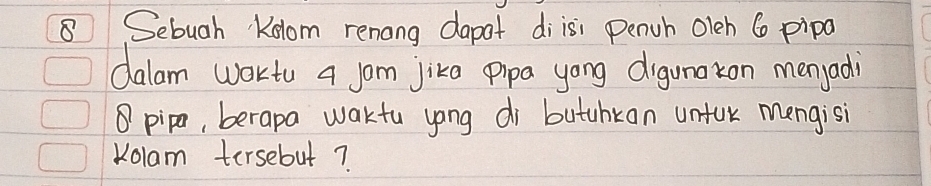 8 Sebuah Kolom renang dapat di isi penuh oleh 6 pipa
dalam waktu 4 jam jika pipa yang digunakan menjadi
8 pipa, berapa waktu yang di butuhkan untuk mengisi
Kolam tersebut ?